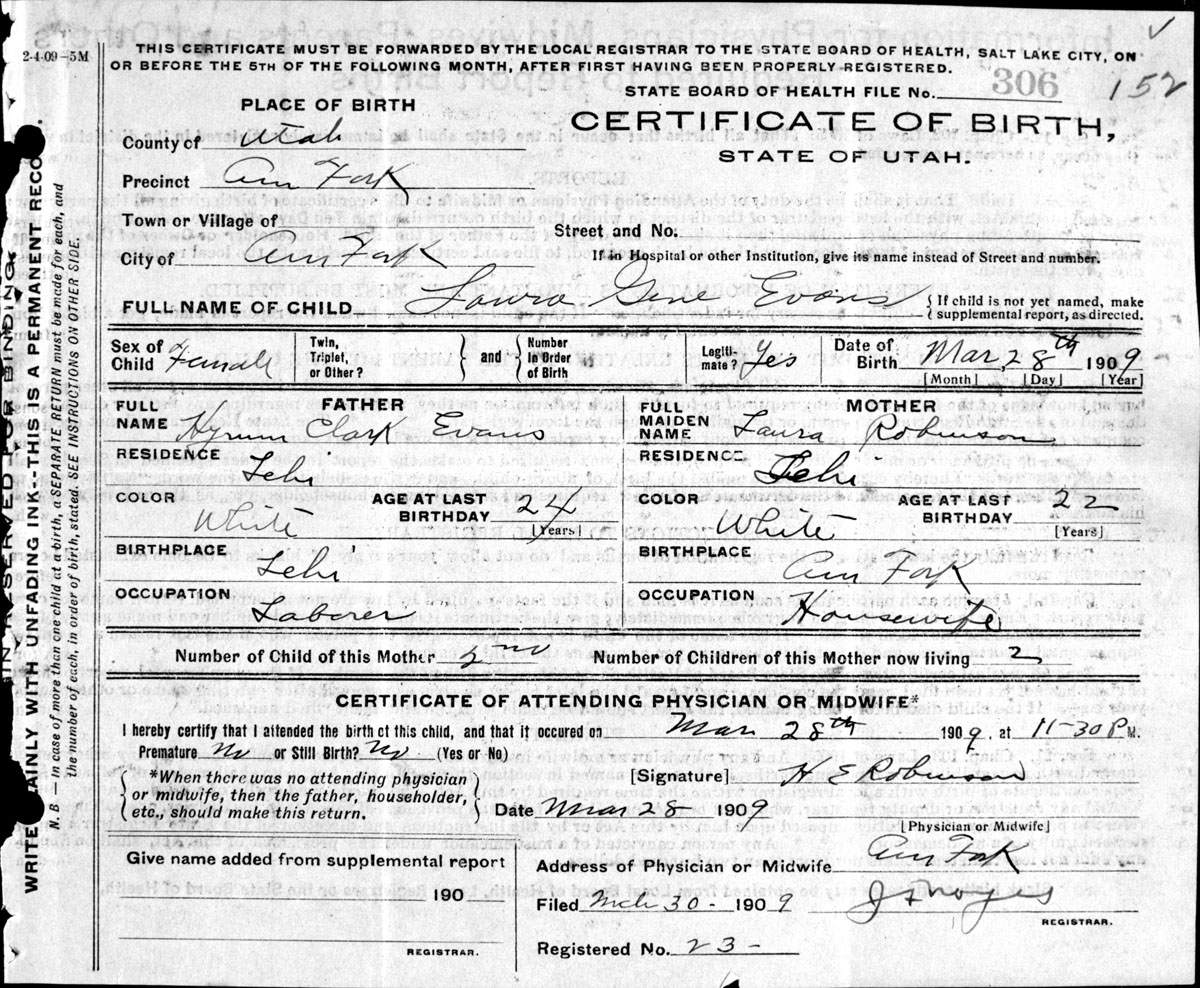 2-4-09-5M
THIS CERTIFICATE MUST BE FORWARDED BY THE LOCAL REGISTRAR TO THE STATE BOARD OF HEALTH, SALT LAKE CITY, ON
OR BEFORE THE 5TH OF THE FOLLOWING MONTH, AFTER FIRST HAVING BEEN PROPERLY REGISTERED.
STATE BOARD OF HEALTH FILE No. 306 152
PLACE OF BIRTH
CERTIFICATE OF BIRTH,
STATE OF UTAH.
County of Utah
Precinct Am Fork
Town or Village of
Street, and No.
City of Am Fork
If in Hospital or other Institution, give its name instead of Street and number.
FULL NAME OF CHILD Laura Gene Evans { If child is not yet named, make supplemental report, as directed.
Sex of Child Female Twin, Triplet, or Other? } and { Number in Order of Birth Legiti-mate? Yes Date of Birth Mar, 28th 1909
[Month] [Day] [Year]
FATHER MOTHER
FULL NAME Hyrum Clark Evans FULL MAIDEN NAME Laura Robinson
RESIDENCE Lehi RESIDENCE Lehi
COLOR White AGE AT LAST BIRTHDAY 24 [Years] COLOR White AGE AT LAST BIRTHDAY 22 [Years]
BIRTHPLACE Lehi BIRTHPLACE Am Fork
OCCUPATION Laborer OCCUPATION Housewife
Number of Child of this Mother 2nd Number of Children of this Mother now living 2
CERTIFICATE OF ATTENDING PHYSICIAN OR MIDWIFE*
I hereby certify that I attended the birth of this child, and that it occured on Mar 28th 1909, at 11-30 P. M.
Premature No or Still Birth? No (Yes or No)
{ *When there was no attending physician or midwife, then the father, householder, etc., should make this return. }
[Signature] H E Robinson
Date Mar 28 1909
[Physician or Midwife]
Give name added from supplemental report
190
REGISTRAR.
Address of Physician or Midwife Am Fork
Filed Mch 30 - 1909 J F Noyes
REGISTRAR.
Registered No. 23 -
IN RESERVED FOR BINDING
WRITE PLAINLY WITH UNFADING INK--THIS IS A PERMANENT RECO
N. B. —In case of more than one child at birth, a SEPARATE RETURN must be made for each, and
the number of each, in order of birth, stated. SEE INSTRUCTIONS ON OTHER SIDE.